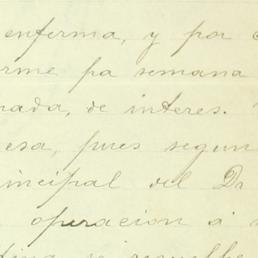 enferma, y por
rme pa semana
nada, de interes.
esa, pues segun
incipal del Dr
operacion á
se resuelve